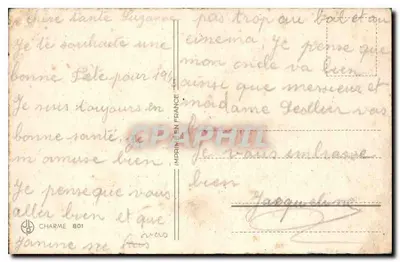 Chère tante Suzanne
je te souhaite une
bonne fête pour
Je suis toujours en
bonne santé, je
m amuse bien
Je pense que vous
aller bien et que
Janine ne vas
pas trop au bal et au
cinema, Je pense que
mon oncle va bien
ainsi que monsieur et
madame vas
bien
Je vous embrasse
bien
Jacqueline
IMPRIMÉ EN FRANCE
CHARME 801
CPArama.com